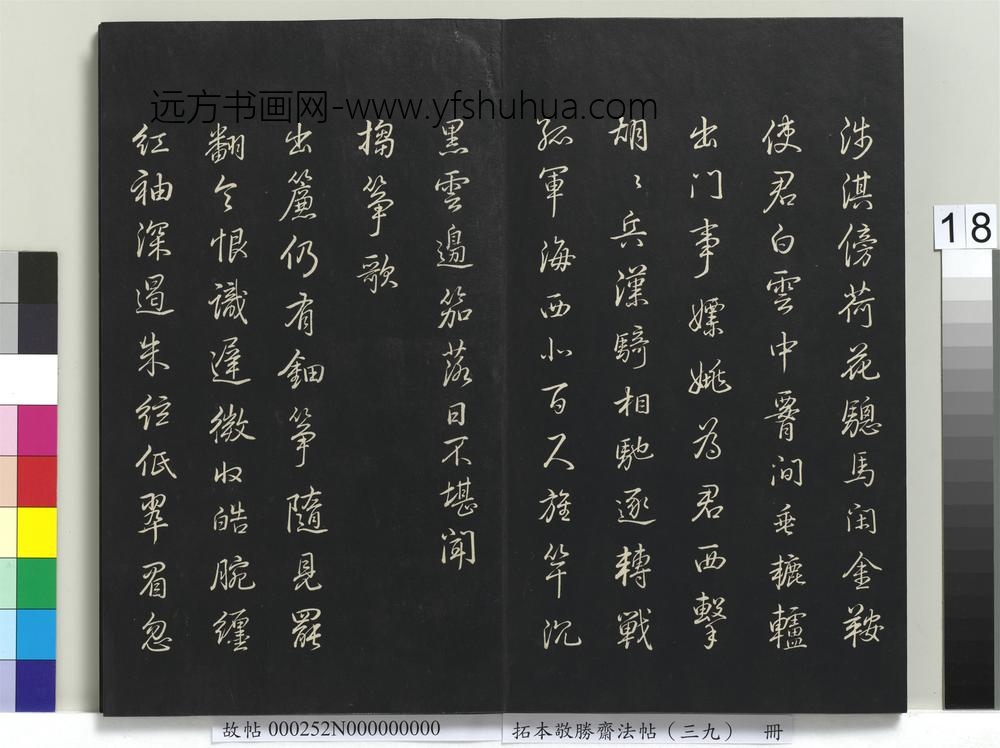 远方书画网-www.yfshuhua.com
涉淇傍荷花驄馬閑金鞍
使君白雲中腰間垂轆轤
出门事嫖姚為君西擊
胡〻兵漢騎相馳逐轉戰
孤軍海西北百尺旌竿沉
黑雲邊笳落日不堪聞
搊箏歌
出簾仍有鈿箏隨見罷
翻令恨識遲微收皓腕纏
紅袖深遏朱絃低翠眉忽
18
故帖 000252N000000000
拓本敬勝齋法帖（三九） 冊